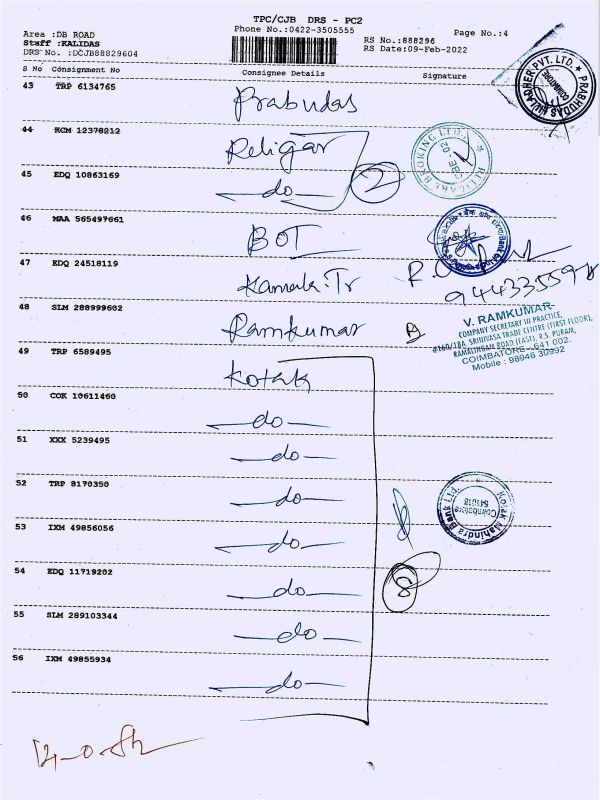 TPC/CJB DRS - PC2
Area :DB ROAD
Phone No.:0422-3505555
Page No.:4
Staff :KALIDAS
RS No.:888296
DRS No. :DCJB88829604
RS Date:09-Feb-2022
S No Consignment No Consignee Details Signature
43 TRP 6134765 Prabudas
PRABHUDAS LILLADHER PVT. LTD. COIMBATORE
44 KCM 12378212 Religar
RELIGARE BROKING LTD. CBE-02
45 EDQ 10863169 do 2
46 MAA 565497661 BOI
47 EDQ 24518119 Kamala.Tr
9443355978
48 SLM 288999602 Ramkumar
V. RAMKUMAR
COMPANY SECRETARY IN PRACTICE,
#160/18A, SRINIVASA TRADE CENTRE (FIRST FLOOR),
RAMALINGAM ROAD (EAST), R.S. PURAM,
COIMBATORE - 641 002.
Mobile : 98946 30992
49 TRP 6589495 Kotak
50 COK 10611460 do
51 XXX 5239495 do
52 TRP 8170350 do
Kotak Mahindra Bank Ltd. Coimbatore 641018
53 IXM 49856056 do
54 EDQ 11719202 do 8
55 SLM 289103344 do
56 IXM 49855934 do